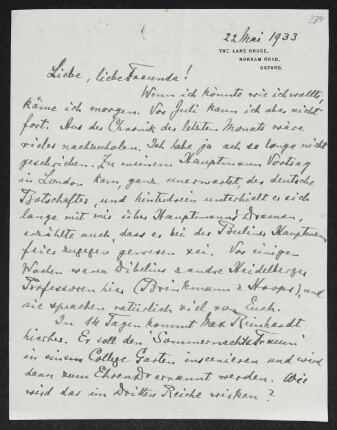 284
22 Mai 1933
THE LANE HOUSE,
NORHAM ROAD,
OXFORD.
Liebe, liebe Freunde!
Wenn ich könnte wie ich wollte,
käme ich morgen. Vor Juli kann ich aber nicht
fort. Aus der Chronik des letzten Monats wäre
vieles nachzuholen. Ich habe ja ach so lange nicht
geschrieben. Zu meinem Hauptmann Vortrag
in London kam, ganz unerwartet, der deutsche
Botschafter, und hinterdrein unterhielt er sich
lange mit mir über Hauptmanns Dramen,
erzählte auch, dass er bei der Berliner Hauptmann
feier zugegen gewesen sei. Vor einigen
Wochen waren Dibelius & andre Heidelberger
Professoren hier (Brinkmann & Hoops), und
sie sprachen natürlich viel von Euch.
In 14 Tagen kommt Max Reinhardt
hierher. Er soll den Sommernachts Traum
in einem College Garten inscenieren und wird
dann zum Ehren Dr ernannt werden. Wie
wird das im Dritten Reiche wirken?